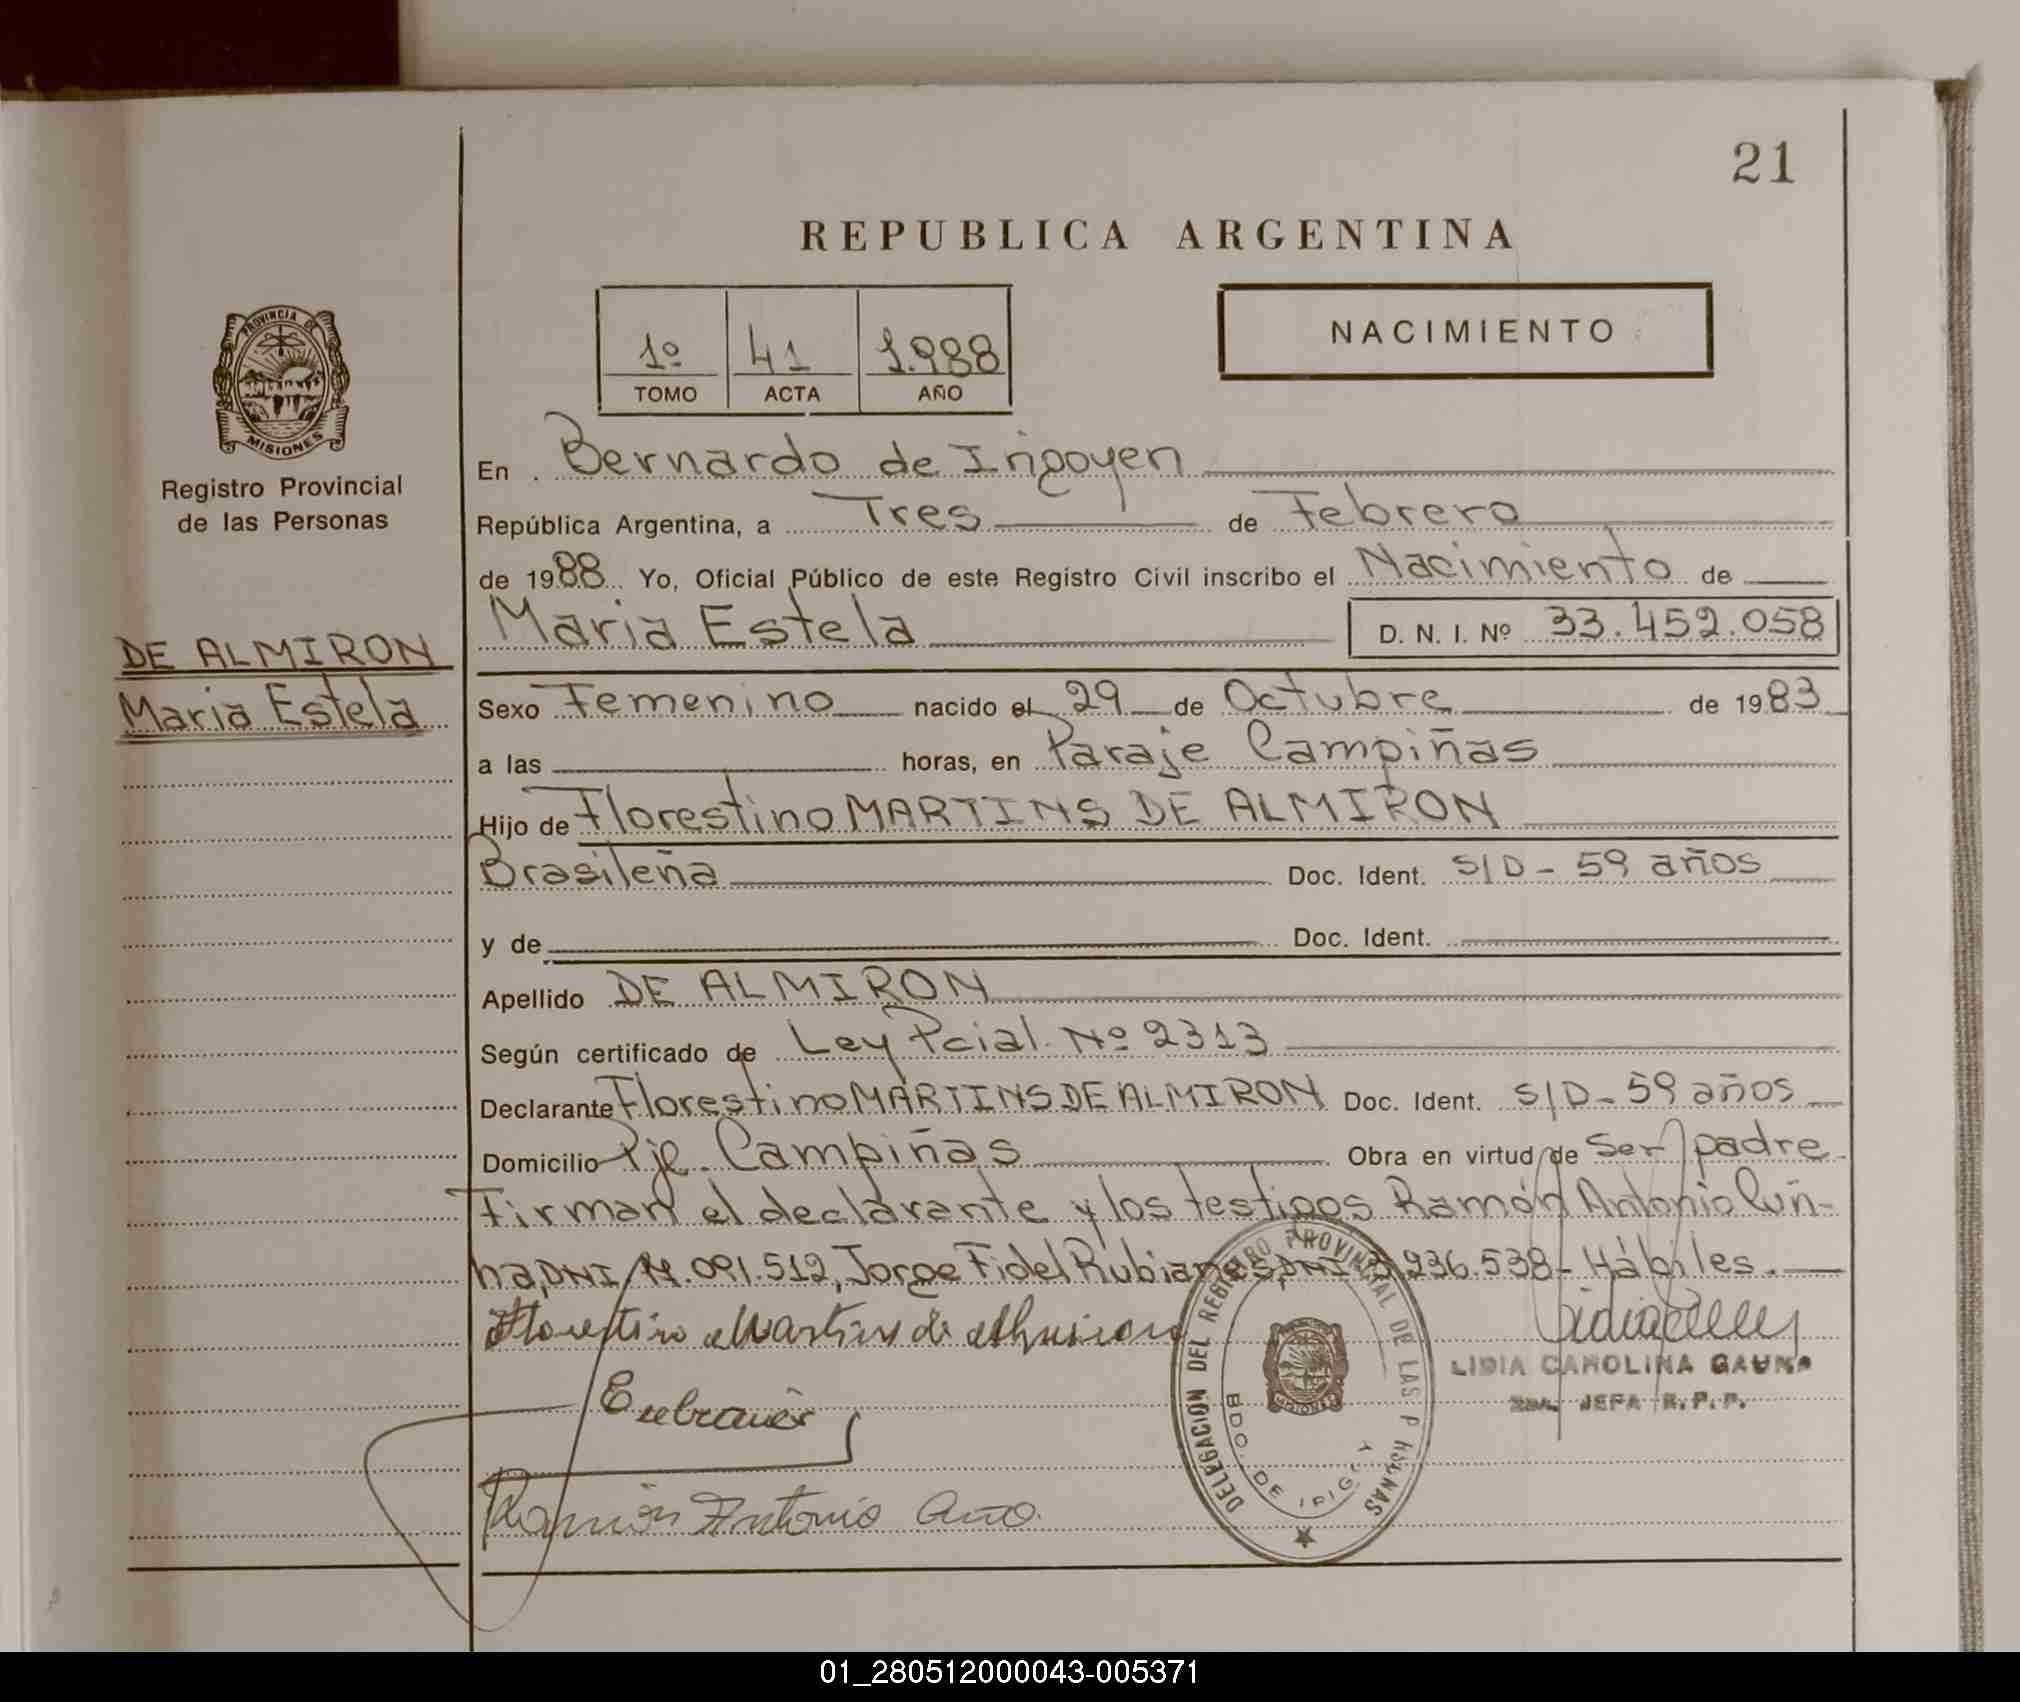 21
REPUBLICA ARGENTINA
1º 41 1.988
TOMO ACTA AÑO
NACIMIENTO
PROVINCIA DE
MISIONES
Registro Provincial
de las Personas
DE ALMIRON
Maria Estela
En Bernardo de Irigoyen
República Argentina, a Tres de Febrero
de 1988 Yo, Oficial Público de este Registro Civil inscribo el Nacimiento de
Maria Estela D. N. I. Nº 33.452.058
Sexo Femenino nacido el 29 de Octubre de 1983
a las horas, en Paraje Campiñas
Hijo de Florestino MARTINS DE ALMIRON
Brasileña Doc. Ident. S/D - 59 años
y de Doc. Ident.
Apellido DE ALMIRON
Según certificado de Ley Pcial. Nº 2313
Declarante Florestino MARTINS DE ALMIRON Doc. Ident. S/D - 59 años
Domicilio Pje. Campiñas Obra en virtud de Ser padre
Firman el declarante y los testigos Ramón Antonio Cuñ-
ha, DNI 14.091.512, Jorge Fidel Rubian DNI 936.538 - Hábiles.
Florestino Martins de Almiron
LIDIA CAROLINA GAUNA
2da. JEFA R.P.P.
Ramón Antonio
DELEGACION DEL REGISTRO PROVINCIAL DE LAS PERSONAS
BDO. DE IRIGOY
01_280512000043-005371